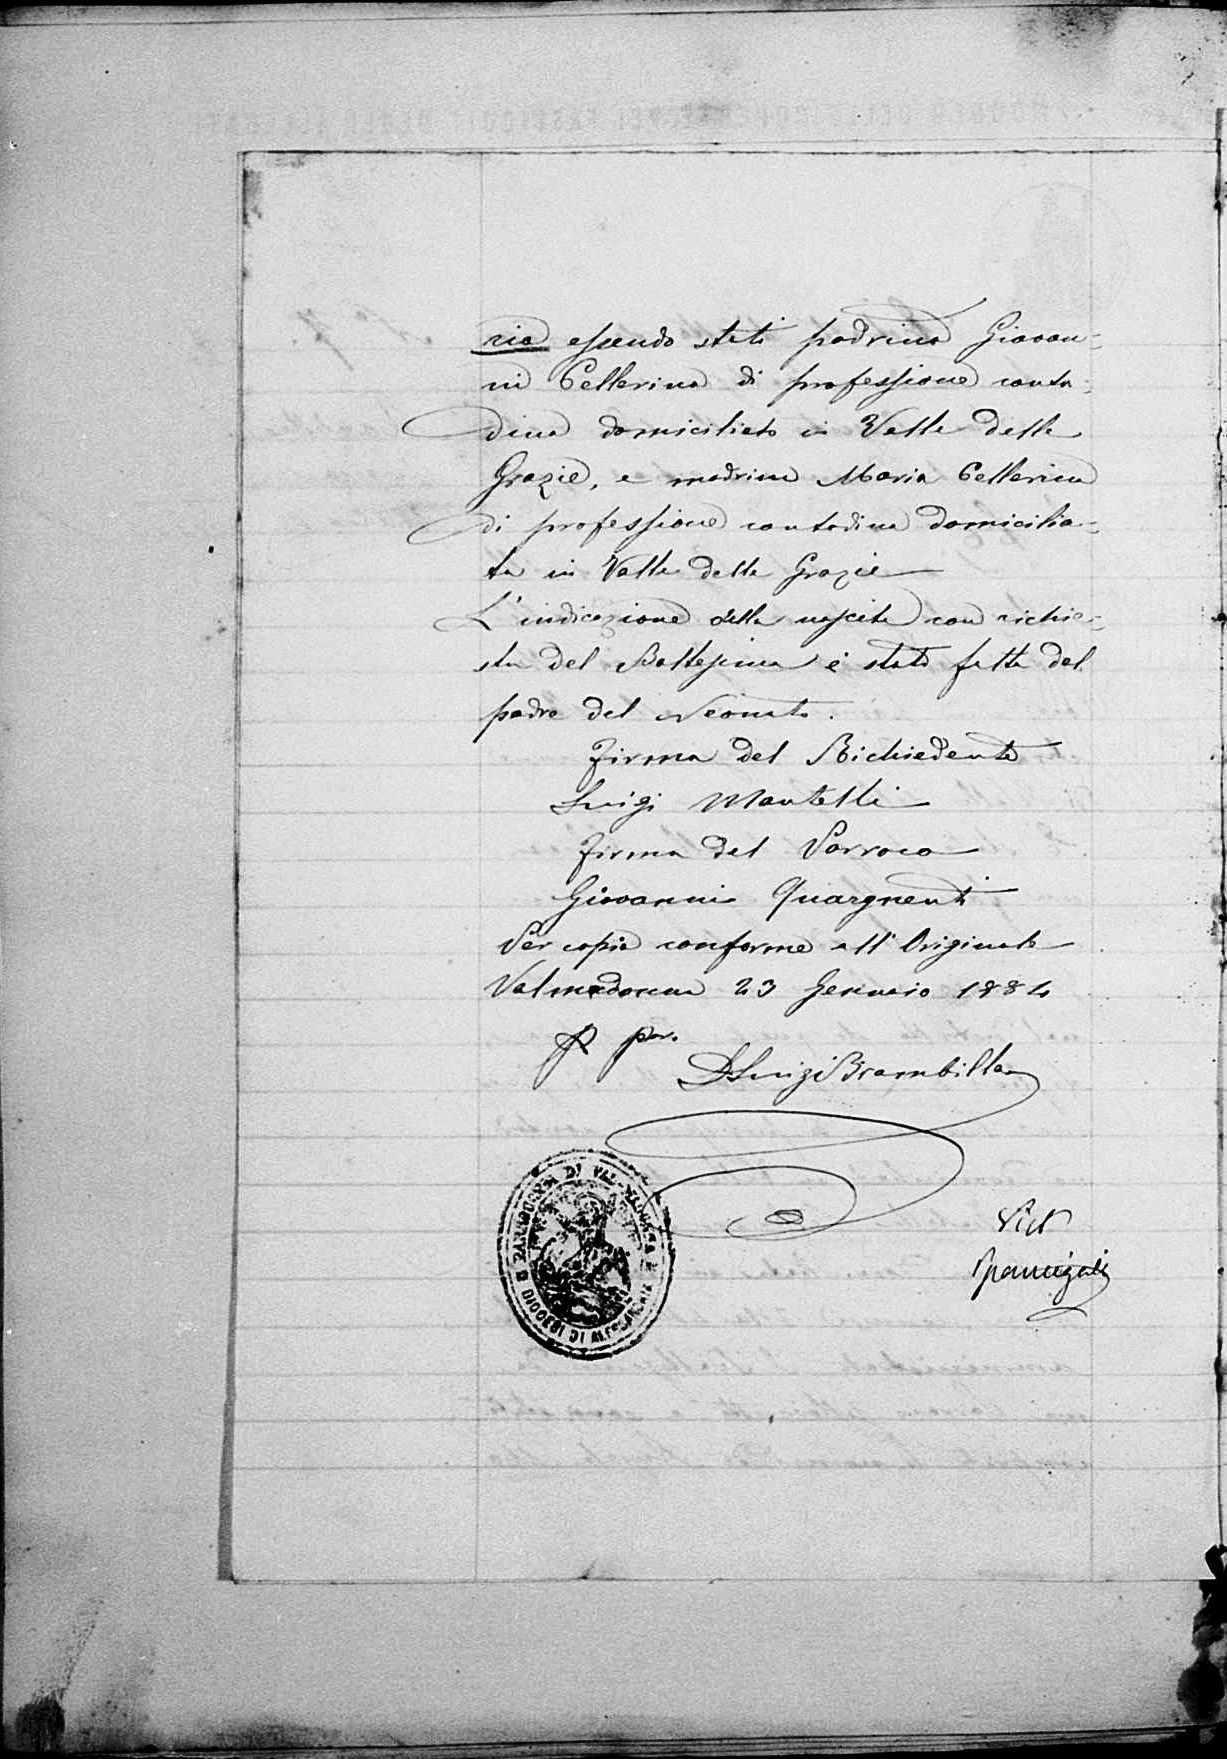 rio essendo stati padrino Giovan=
ni Pellerino di professione conta=
dino domiciliato in Valle delle
Grazie, e madrina Maria Pellerina
di professione contadina domicilia=
ta in Valle delle Grazie
L'indicazione della nascita con richie=
sta del Battesimo è stata fatta dal
padre del Neonato.
Firma del Richiedente
Luigi Mantelli
Firma del Parroco
Giovanni Quargnenti
Per copia conforme all'Originale
Valmadonna 23 Gennaio 1884
par.
D Luigi Brambilla
PARROCCHIA DI VALMADONNA
DIOCESI DI ALESSANDRIA
Vid